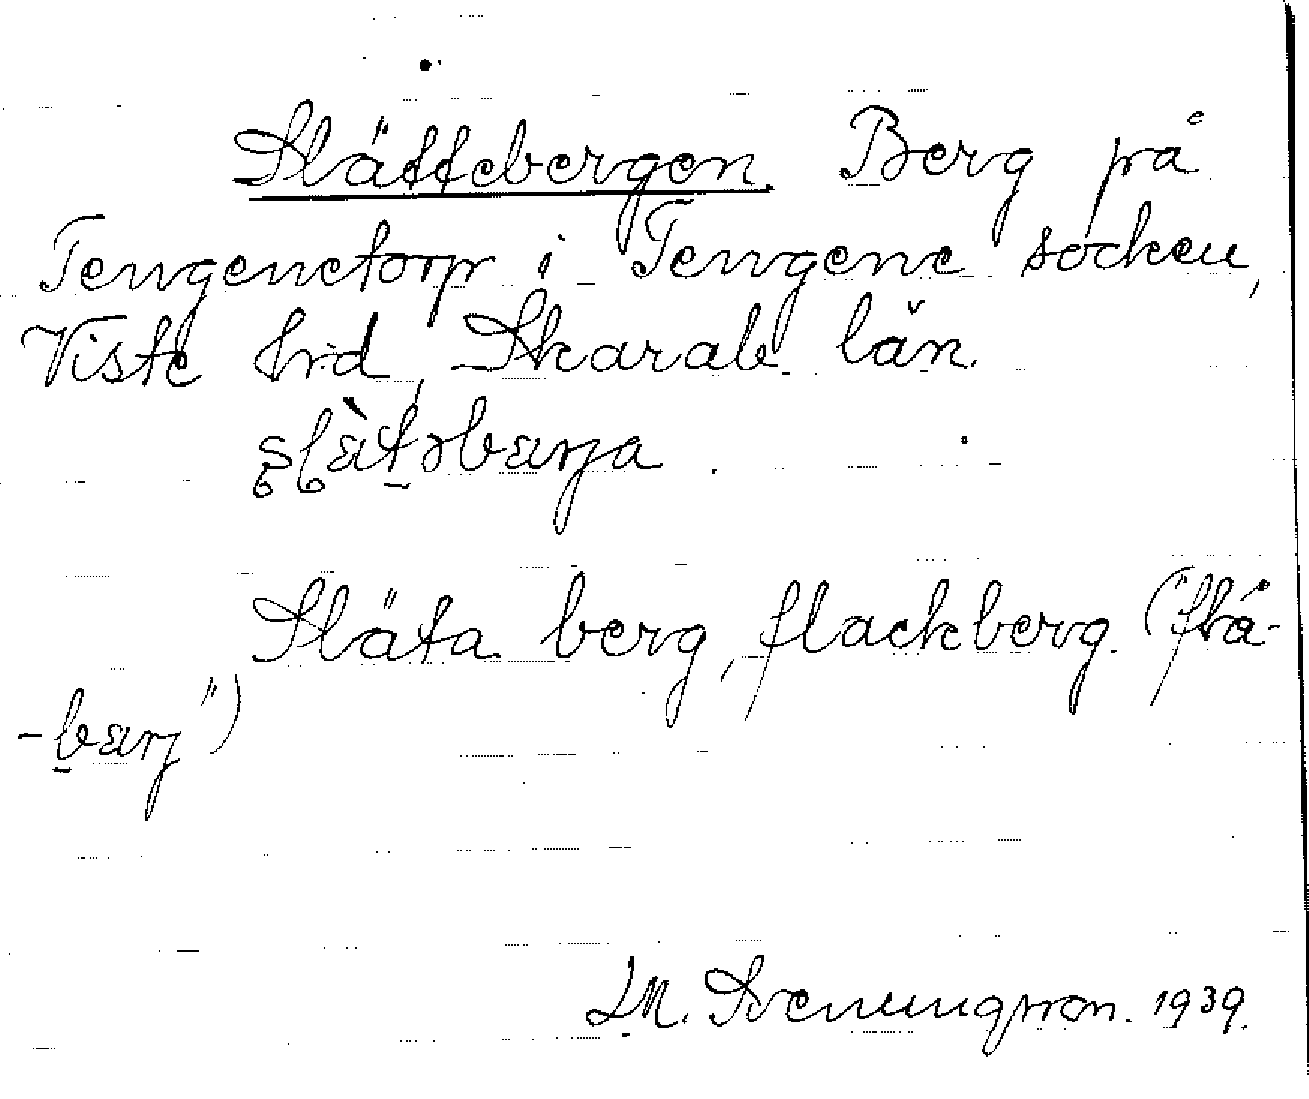 Slättebergen Berg på
Tengenetorp i Tengene socken,
Viste hrd, Skarab. län.
Släta berg, flackberg. ("flå-
L.M. Svenungsson. 1939.